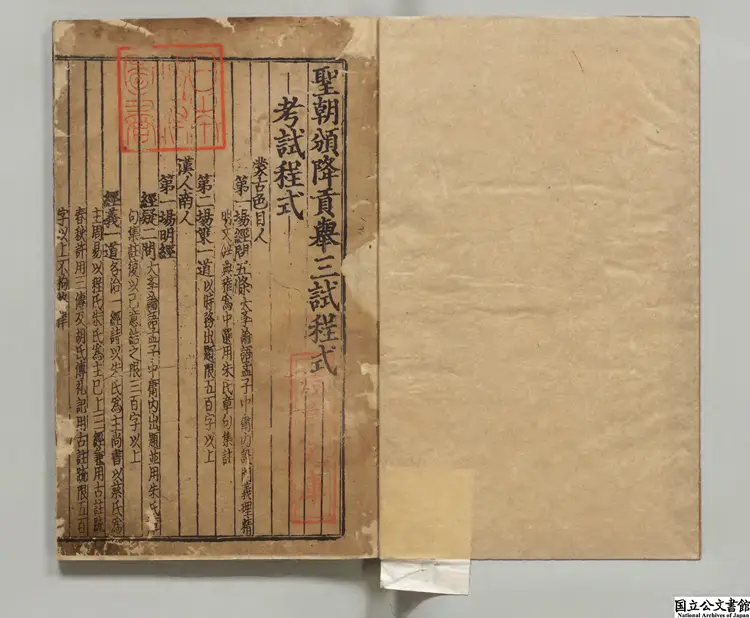 聖朝頒降貢舉三試程式
考試程式
蒙古色目人
第一場經問五條大孝論語孟子中庸內設問義理精
明文辞典雅爲中選用朱氏章句集註
第二場策一道以時務出題限五百字以上
漢人南人
第一場明經
經疑二問大孝論語孟子中庸內出題並用朱氏章
句集註復以己意結之限三百字以上
經義一道各治一經詩以朱氏爲主尚書以蔡氏爲
主周易以程氏朱氏爲主已上三經兼用古註疏
春秋許用三傳及胡氏傳礼記用古註疏限五百
字以上不拘格律
国立公文書館
National Archives of Japan